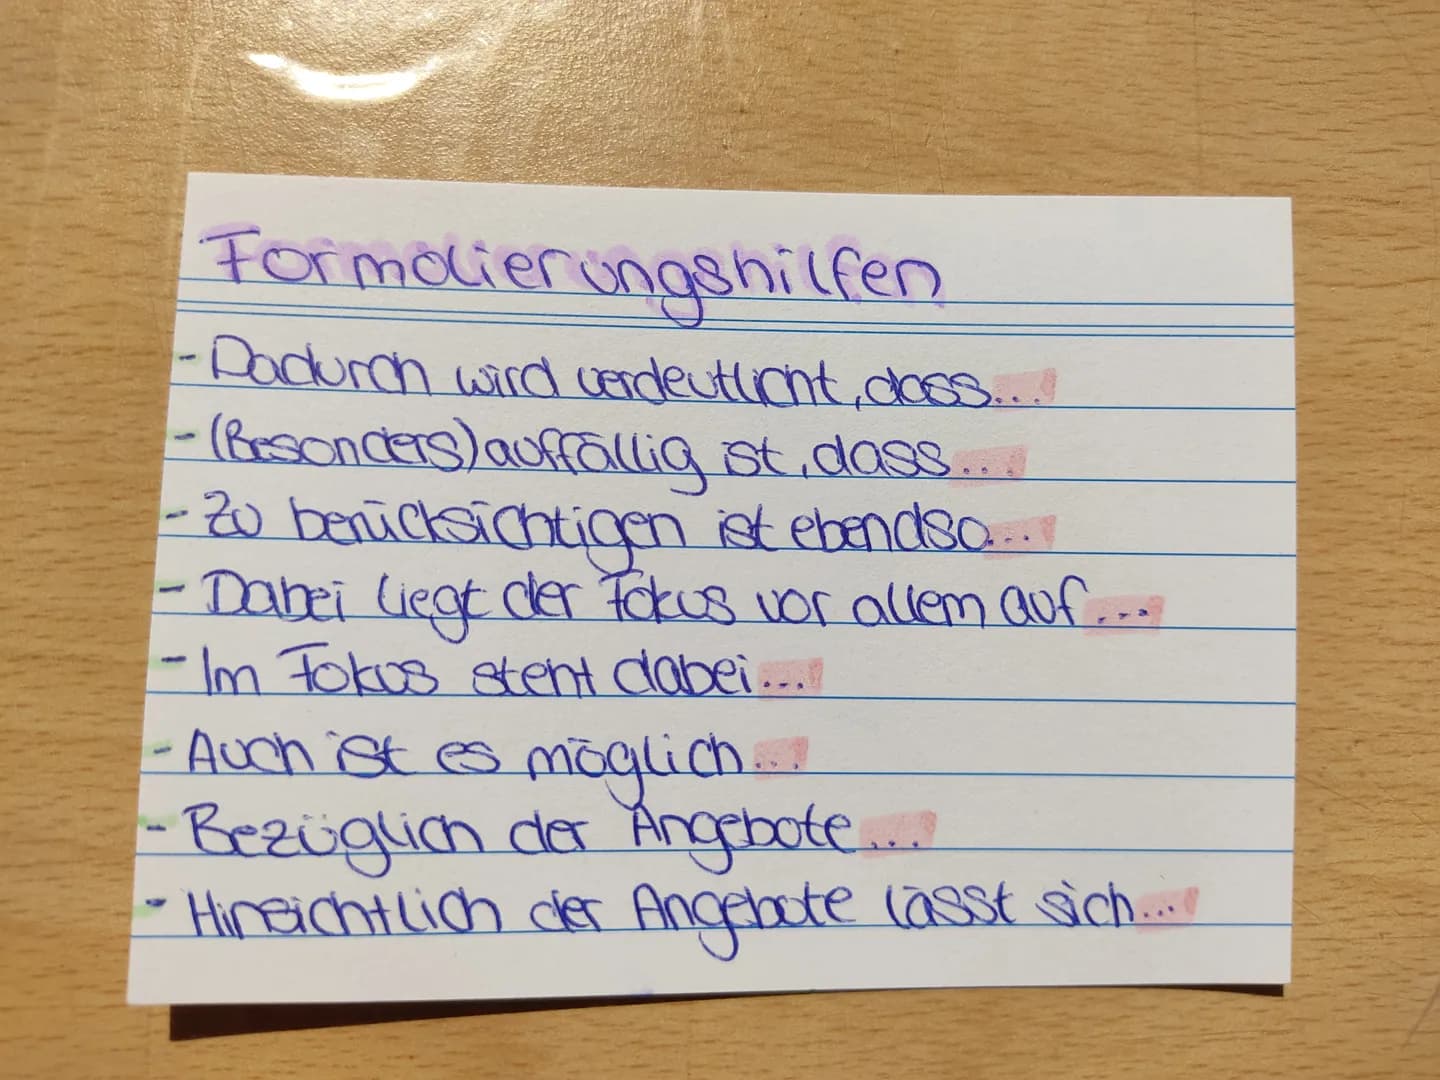 Formulierungshilfen
- Dadurch wird verdeutlicht, dass...
- (Besonders) auffällig ist, dass...
- Zu berücksichtigen ist ebendso...
- Dabei liegt der Fokus vor allem auf...
- Im Fokus steht dabei...
- Auch ist es möglich...
- Bezüglich der Angebote...
- Hinsichtlich der Angebote lässt sich...